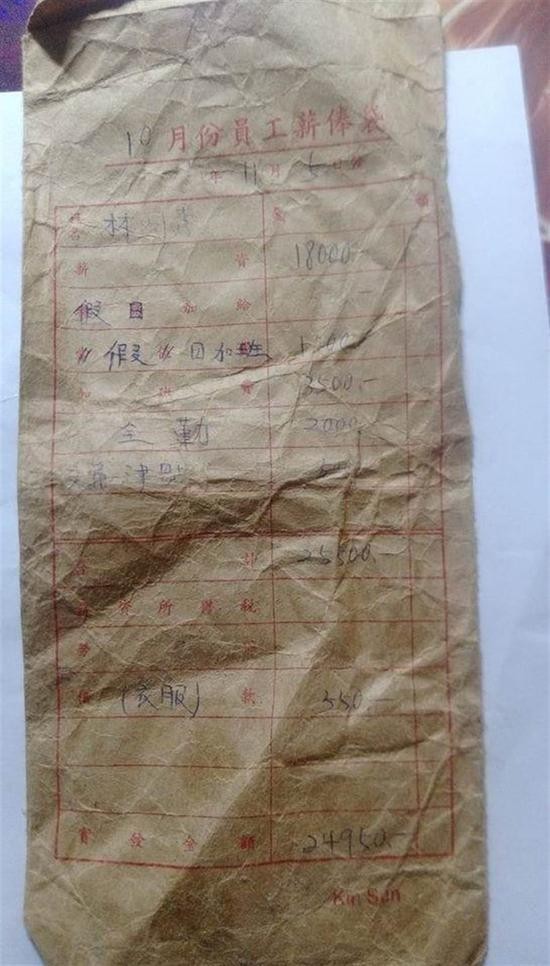 10月份員工薪俸袋
年 11 月 5 日
姓名 林 額
薪 資 18000.-
假日 加 給
"假" 日加班
加 班 費 3500.-
全勤 2000
津貼
合 計 25500.-
薪 資 所 得 稅
勞
借 (衣服) 款 550.-
實 發 金 額 24950.-
Kin San